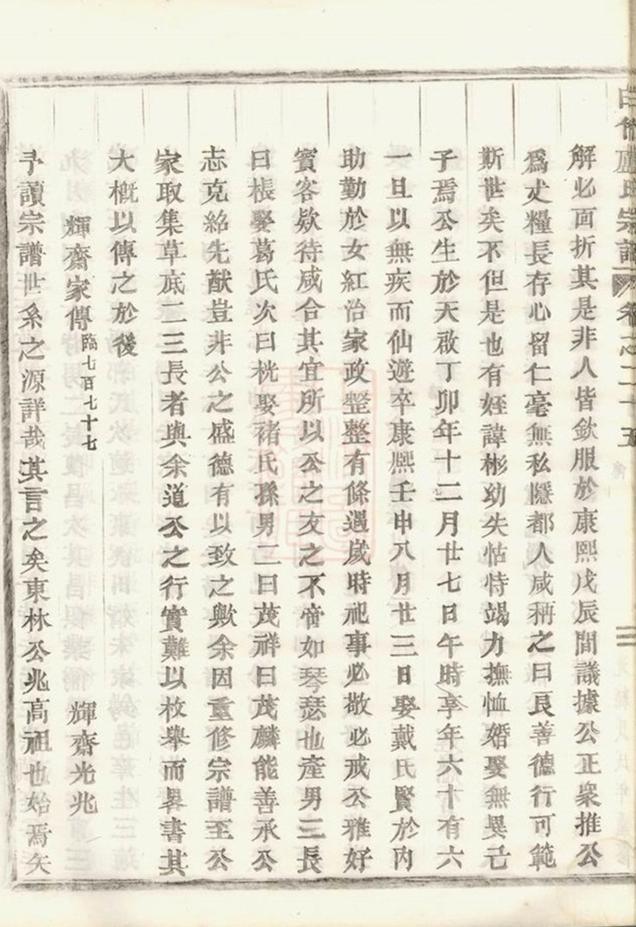 解必面折其是非人皆欽服於康熙戊辰間議據公正衆推公
爲丈糧長存心留仁毫無私隱都人咸稱之曰良善德行可範
斯世矣不但是也有姪諱彬幼失怙恃竭力撫恤婚娶無異己
子焉公生於天啟丁卯年十二月廿七日午時享年六十有六
一旦以無疾而仙遊卒康熙壬申八月廿三日娶戴氏賢於內
助勤於女紅治家政整整有條遇歲時祀事必敬必戒公雅好
賓客欵待咸合其宜所以公之友之不啻如琴瑟也產男二長
曰棖娶葛氏次曰桄娶褚氏孫男二曰茂祥曰茂麟能善承公
志克紹先猷豈非公之盛德有以致之歟余因重修宗譜至公
家取集草底二三長者與余道公之行實難以枚舉而畧書其
大概以傳之於後
輝齋家傳臨七百七十七　輝齋光兆
予讀宗譜世系之源詳哉其言之矣東林公兆高祖也始焉矢
盧氏宗譜 卷之二十五